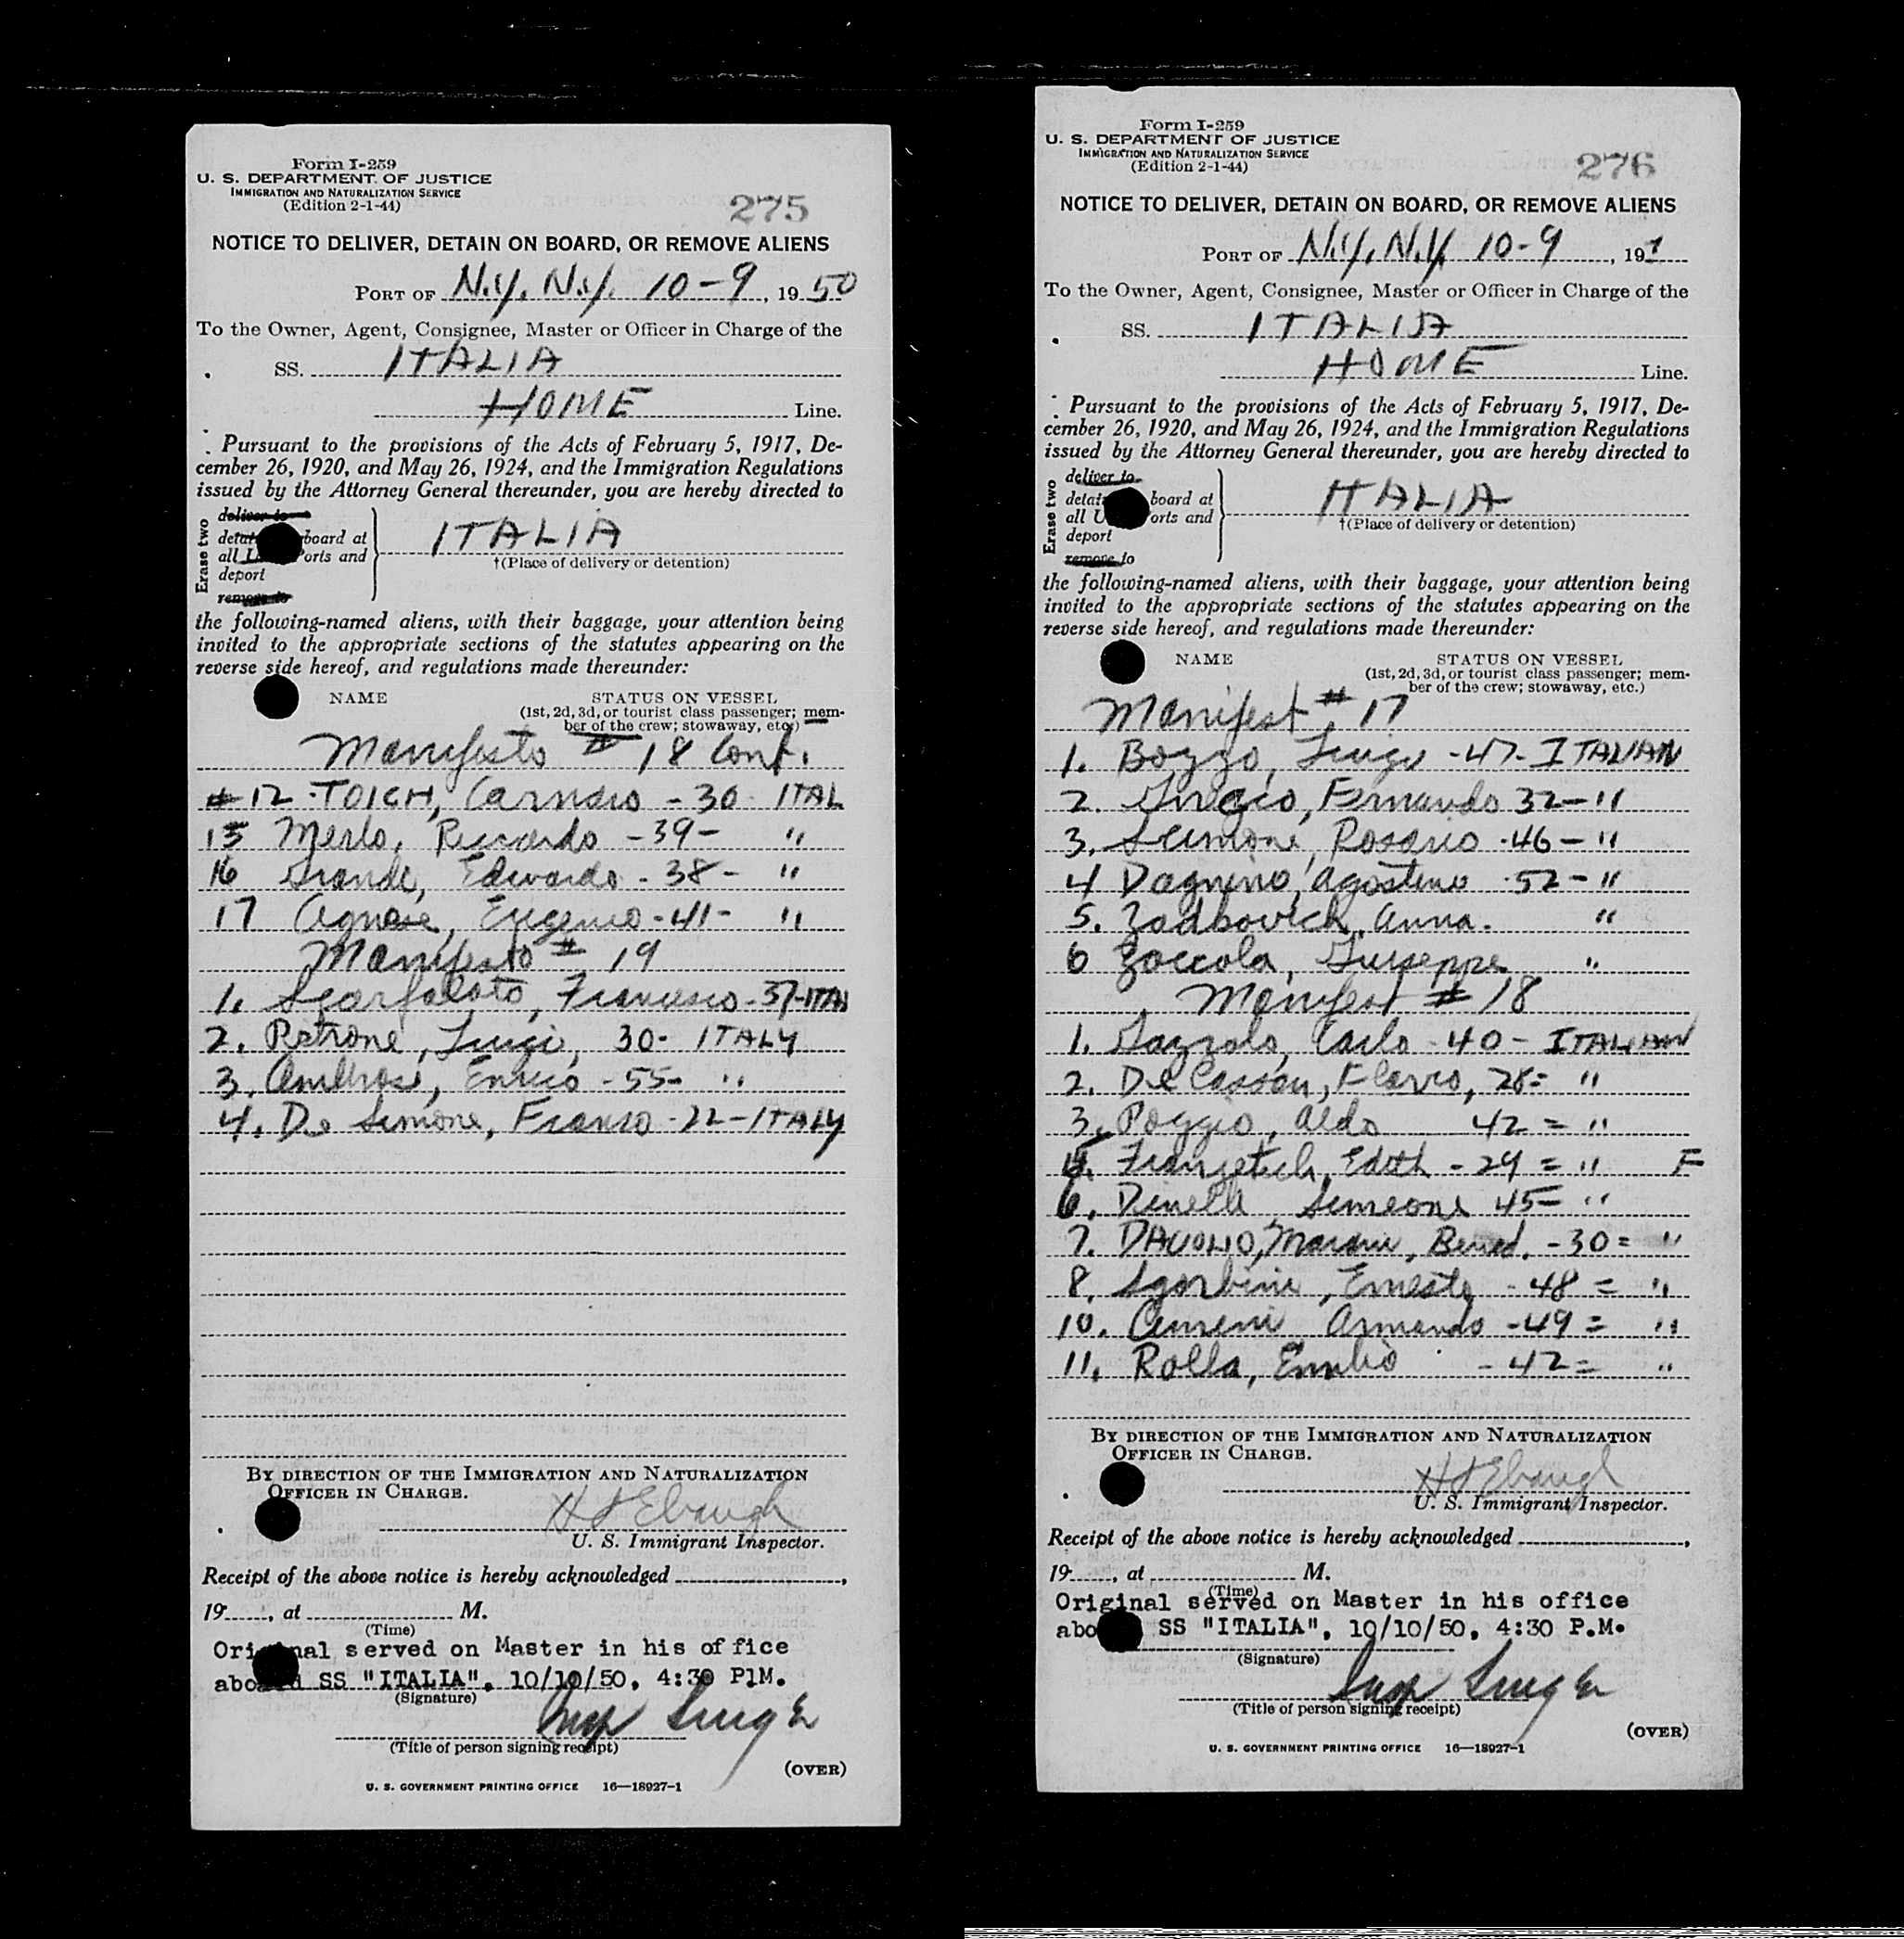 Form I-259
U. S. DEPARTMENT OF JUSTICE
IMMIGRATION AND NATURALIZATION SERVICE
(Edition 2-1-44)
275
NOTICE TO DELIVER, DETAIN ON BOARD, OR REMOVE ALIENS
PORT OF N.Y. N.Y. 10-9, 1950
To the Owner, Agent, Consignee, Master or Officer in Charge of the
SS. ITALIA
HOME Line.
Pursuant to the provisions of the Acts of February 5, 1917, De-
cember 26, 1920, and May 26, 1924, and the Immigration Regulations
issued by the Attorney General thereunder, you are hereby directed to
Erase two
deliver to
board at
all orts and
deport
remove to
ITALIA
†(Place of delivery or detention)
the following-named aliens, with their baggage, your attention being
invited to the appropriate sections of the statutes appearing on the
reverse side hereof, and regulations made thereunder:
NAME STATUS ON VESSEL
(1st, 2d, 3d, or tourist class passenger; mem-
ber of the crew; stowaway, etc.)
Manifesto # 18 Cont.
#12 TOICH, - 30 ITAL
15 Merlo, Riccardo - 39 - "
16 Grande, Edwardo - 38 - "
17 Agnese, Eugenio - 41 - "
Manifesto # 19
1. Sgarfalato, Francesco - 37 -
2. Petrone, Luigi, 30 - ITALY
3. Ambrosi, Enrico - 55 - "
4. De Simone, Franco - 22 - ITALY
BY DIRECTION OF THE IMMIGRATION AND NATURALIZATION
OFFICER IN CHARGE.
Ebaugh
U. S. Immigrant Inspector.
Receipt of the above notice is hereby acknowledged ,
19 , at M.
(Time)
Original served on Master in his of fice
aboard SS "ITALIA", 10/10/50, 4:30 P.M.
(Signature)
Insp
(Title of person signing receipt)
(OVER)
U. S. GOVERNMENT PRINTING OFFICE 16—18927-1
Form I-259
U. S. DEPARTMENT OF JUSTICE
IMMIGRATION AND NATURALIZATION SERVICE
(Edition 2-1-44)
276
NOTICE TO DELIVER, DETAIN ON BOARD, OR REMOVE ALIENS
PORT OF N.Y. N.Y. 10-9, 19
To the Owner, Agent, Consignee, Master or Officer in Charge of the
SS. ITALIA
HOME Line.
Pursuant to the provisions of the Acts of February 5, 1917, De-
cember 26, 1920, and May 26, 1924, and the Immigration Regulations
issued by the Attorney General thereunder, you are hereby directed to
Erase two
deliver to
board at
all orts and
deport
remove to
ITALIA
†(Place of delivery or detention)
the following-named aliens, with their baggage, your attention being
invited to the appropriate sections of the statutes appearing on the
reverse side hereof, and regulations made thereunder:
NAME STATUS ON VESSEL
(1st, 2d, 3d, or tourist class passenger; mem-
ber of the crew; stowaway, etc.)
Manifest # 17
1. Bozzo, Luigi - 47 - ITALIAN
2. Fernando 32 - "
3. Scimone, Rosario - 46 - "
4 Dagnino, Agostino - 52 - "
5. Zadkovich, Anna. "
6 Zoccola, Giuseppe "
Manifest # 18
1. Gazzolo, Carlo - 40 - ITALIAN
2. Del Cassan, Flavio, 28 = "
3. Poggio, Aldo 42 = "
Edith - 29 = " F
6. Dinelli Simeone 45 = "
7. DAVOLIO, Marani, Bened. - 30 = "
8. Sgorbini, Ernesto - 48 = "
10. Armando - 49 = "
11. Rolla, Emilio - 42 = "
BY DIRECTION OF THE IMMIGRATION AND NATURALIZATION
OFFICER IN CHARGE.
Ebaugh
U. S. Immigrant Inspector.
Receipt of the above notice is hereby acknowledged ,
19 , at M.
(Time)
Original served on Master in his office
abo SS "ITALIA", 10/10/50, 4:30 P.M.
(Signature)
Insp
(Title of person signing receipt)
(OVER)
U. S. GOVERNMENT PRINTING OFFICE 16—18927-1